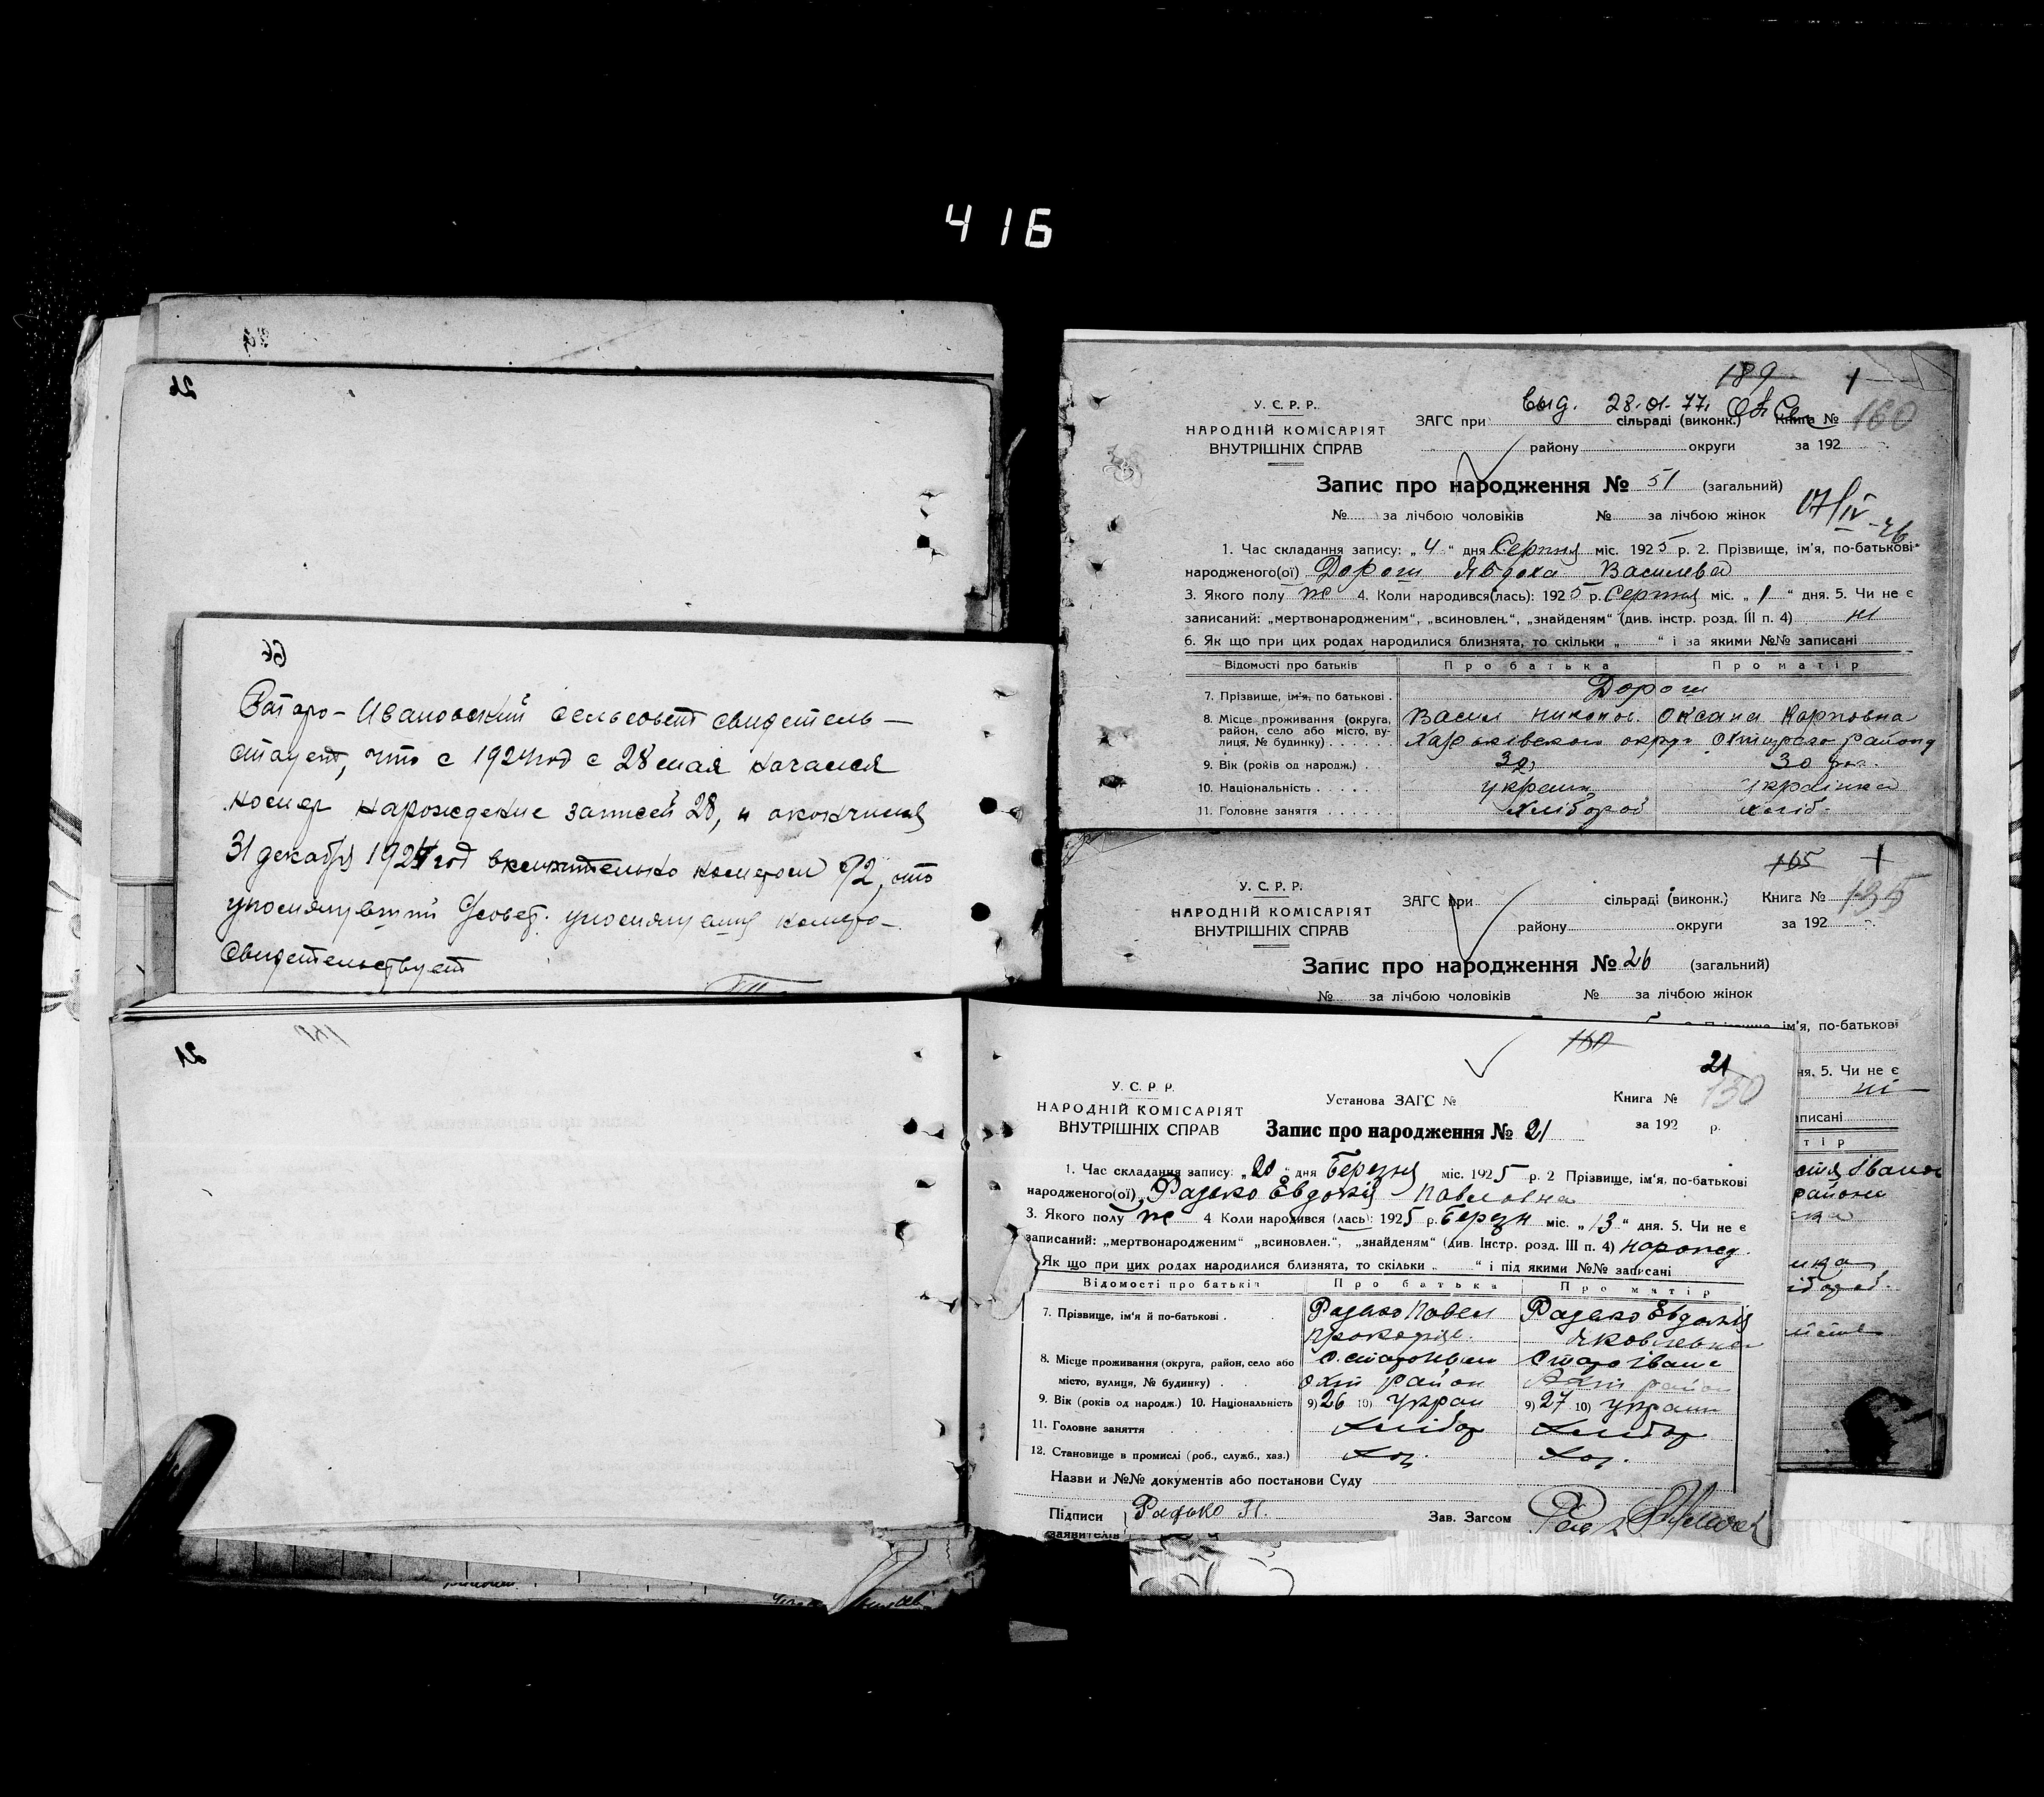 416
26
66
Старо-Ивановский сельсовет свидетель-
ствует, что с 1924 год с 28 мая начался
номер нарождение записей 28, и окончился
31 декабря 1924 год включительно номером 92, что
упомянутый
свидетельствует
21
189 1
выд. 28.01.77г.
У. С. Р. Р.
НАРОДНІЙ КОМІСАРІЯТ
ВНУТРІШНІХ СПРАВ
ЗАГС при сільраді (виконк.) Книга № 160
району округи за 192
Запис про народження № 51 (загальний)
№ за лічбою чоловіків № за лічбою жінок
17/IV-26
1. Час складання запису: „ 4 “ дня Серпня міс. 1925 р. 2. Прізвище, ім'я, по-батькові
народженого(ої) Дорош Явдоха Василева
3. Якого полу ж 4. Коли народився(лась): 1925 р. Серпня міс. „ 1 “ дня. 5. Чи не є
записаний: „мертвонародженим“, „всиновлен.“, „знайденям“ (див. інстр. розд. III п. 4) ні
6. Як що при цих родах народилися близнята, то скільки „ “ і за якими №№ записані
Відомості про батьків Про батька Про матір
7. Прізвище, ім'я, по батькові . Дорош
8. Місце проживання (округа, Васил Оксана Карповна
район, село або місто, ву-
лиця, № будинку) . . . . . . Харьківского округи Охтирско району
9. Вік (років од народж.) . 32 30
10. Національність . . . . . україн українка
11. Головне заняття . . . . . . Хлібороб хліб
165 1
У. С. Р. Р.
НАРОДНІЙ КОМІСАРІЯТ
ВНУТРІШНІХ СПРАВ
ЗАГС при сільраді (виконк.) Книга № 135
району округи за 192
Запис про народження № 26 (загальний)
№ за лічбою чоловіків № за лічбою жінок
ім'я, по-батькові
ня. 5. Чи не є
ні
записані
тір
району
160
21
У. С. Р. Р.
НАРОДНІЙ КОМІСАРІЯТ
ВНУТРІШНІХ СПРАВ
Установа ЗАГС № Книга № 130
Запис про народження № 21 за 192 р.
1. Час складання запису: „ 20 “ дня Березня міс. 1925 р. 2 Прізвище, ім'я, по-батькові
народженого(ої) Радько Евдокія Павловна
3. Якого полу ж 4 Коли народився (лась): 1925 р. Березн міс. „ 13 “ дня. 5. Чи не є
записаний: „мертвонародженим“ „всиновлен.“, „знайденям“ (див. Інстр. розд. III п. 4) нарожд.
Як що при цих родах народилися близнята, то скільки „ “ і під якими №№ записані
Відомості про батьків Про батька Про матір
7. Прізвище, ім'я й по-батькові . Радько Павел Радько Евдокія
Яковлевна
8. Місце проживання (округа, район, село або с. староиван староіване
місто, вулиця, № будинку) . Охт район Охт район
9. Вік (років од народж.) 10. Національність 9) 26 10) Украи 9) 27 10) украин
11. Головне заняття Хлібор Хлібор
12. Становище в промислі (роб., служб., хаз.) Хоз. Хоз.
Назви и №№ документів або постанови Суду
Підписи Радько П. Зав. Загсом
заявителів